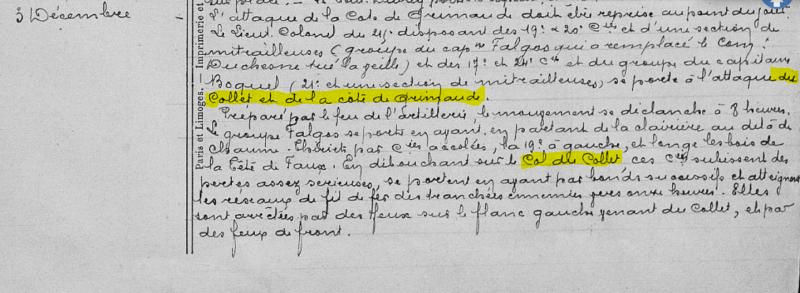 3 Décembre
L'attaque de la Cote de Grimaude doit être reprise au point du jour.
Le Lieut. Colonel du 215 disposant des 19e & 20e Cies et d'une section de
mitrailleuses (groupe du capne Falgos qui a remplacé le Comt
Duchesne tué la veille) et des 17e et 24e Cies et du groupe du capitaine
Boquel (21e et une section de mitrailleuses) se porte à l'attaque du
Collet et de la côte de Grimaude.
Préparé par le feu de l'artillerie, le mouvement se déclanche à 8 heures.
Le groupe Falgos se porte en avant, en partant de la clairière au delà de
Chaume par Cies accolées, la 19e à gauche, et longe les bois de
la Tête de Faux. En débouchant sur le Col du Collet ces Cies subissent des
pertes assez serieuses, se portent en avant par bonds successifs et atteignent
les réseaux de fil de fer des tranchées ennemies vers onze heures. Elles
sont arrêtées par des feux sur le flanc gauche venant du Collet, et par
des feux de front.
Paris et Limoges. Imprimerie et